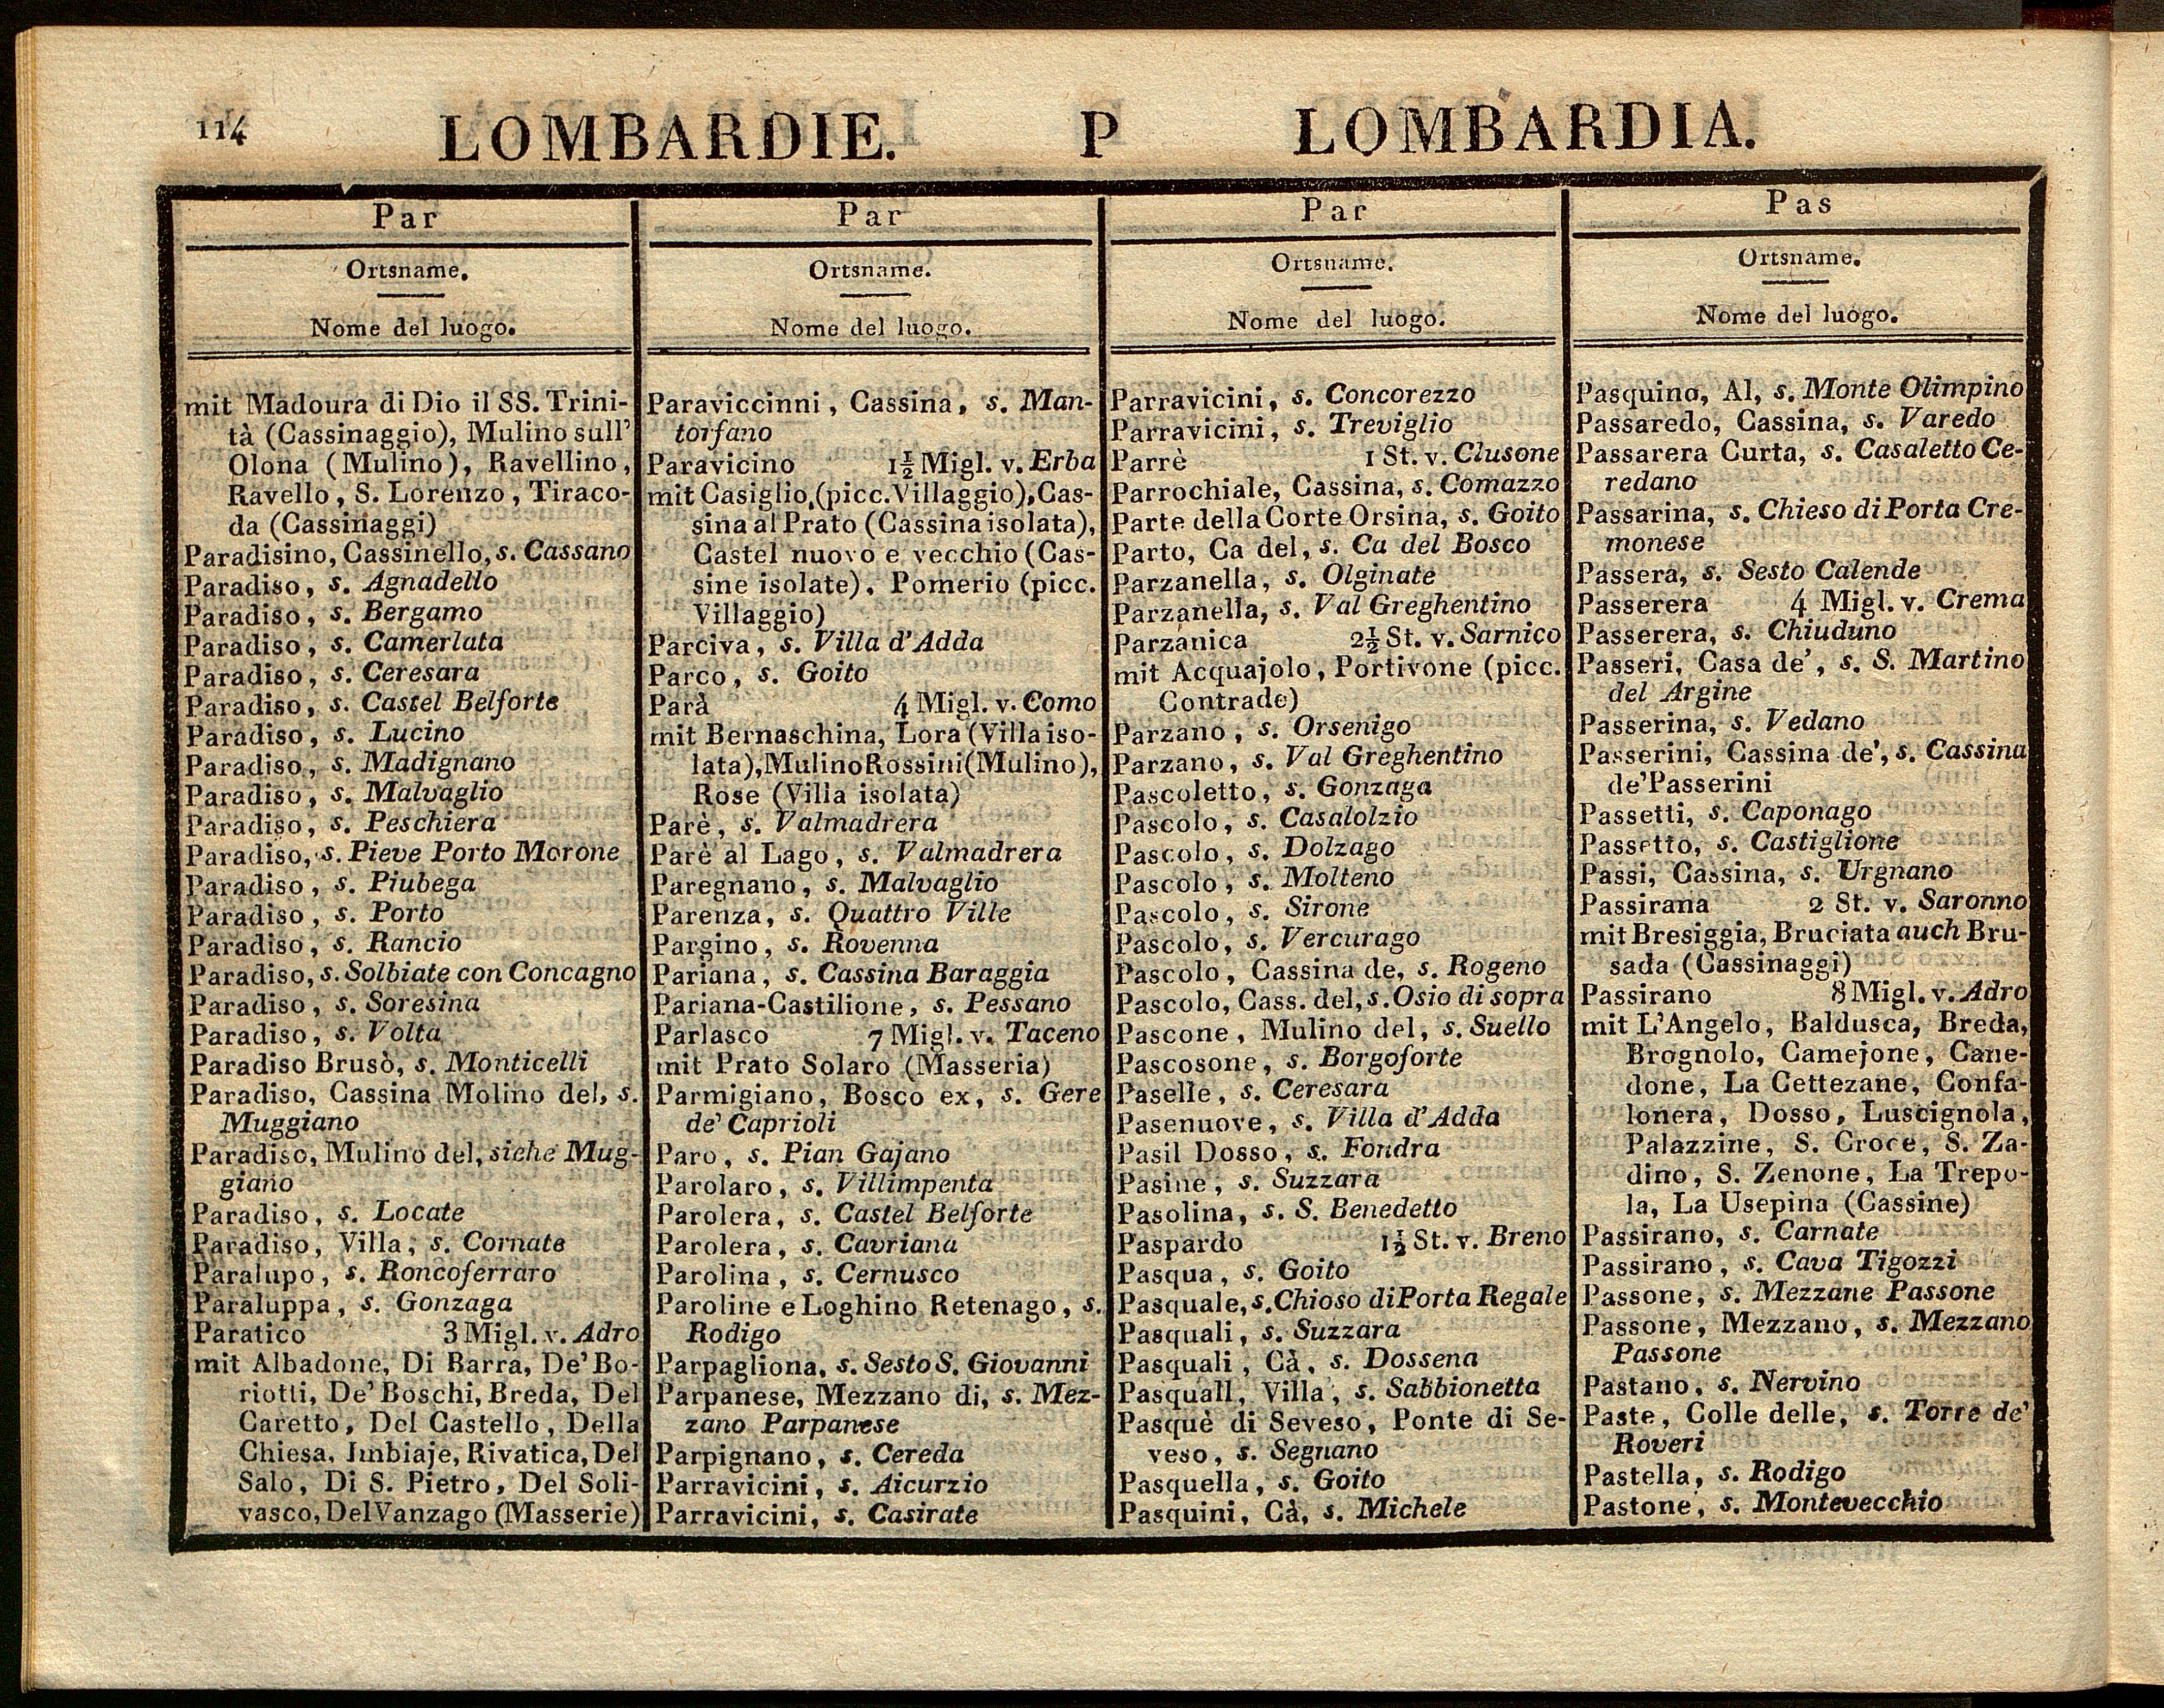 114
LOMBARDIE. P LOMBARDIA.
Par
Ortsname.
Nome del luogo.
mit Madoura di Dio il SS. Trini-
tà (Cassinaggio), Mulino sull'
Olona (Mulino), Ravellino,
Ravello, S. Lorenzo, Tiraco-
da (Cassinaggi)
Paradisino, Cassinello, s. Cassano
Paradiso, s. Agnadello
Paradiso, s. Bergamo
Paradiso, s. Camerlata
Paradiso, s. Ceresara
Paradiso, s. Castel Belforte
Paradiso, s. Lucino
Paradiso, s. Madignano
Paradiso, s. Malvaglio
Paradiso, s. Peschiera
Paradiso, s. Pieve Porto Morone
Paradiso, s. Piubega
Paradiso, s. Porto
Paradiso, s. Rancio
Paradiso, s. Solbiate con Concagno
Paradiso, s. Soresina
Paradiso, s. Volta
Paradiso Brusò, s. Monticelli
Paradiso, Cassina Molino del, s.
Muggiano
Paradiso, Mulino del, siehe Mug-
giano
Paradiso, s. Locate
Paradiso, Villa, s. Cornate
Paralupo, s. Roncoferraro
Paraluppa, s. Gonzaga
Paratico 3 Migl. v. Adro
mit Albadone, Di Barra, De' Bo-
riotti, De' Boschi, Breda, Del
Caretto, Del Castello, Della
Chiesa, Imbiaje, Rivatica, Del
Salo, Di S. Pietro, Del Soli-
vasco, Del Vanzago (Masserie)
Par
Ortsname.
Nome del luogo.
Paraviccinni, Cassina, s. Man-
torfano
Paravicino 1½ Migl. v. Erba
mit Casiglio, (picc. Villaggio), Cas-
sina al Prato (Cassina isolata),
Castel nuovo e vecchio (Cas-
sine isolate), Pomerio (picc.
Villaggio)
Parciva, s. Villa d'Adda
Parco, s. Goito
Parà 4 Migl. v. Como
mit Bernaschina, Lora (Villa iso-
lata), Mulino Rossini (Mulino),
Rose (Villa isolata)
Parè, s. Valmadrera
Parè al Lago, s. Valmadrera
Paregnano, s. Malvaglio
Parenza, s. Quattro Ville
Pargino, s. Rovenna
Pariana, s. Cassina Baraggia
Pariana-Castilione, s. Pessano
Parlasco 7 Migl. v. Taceno
mit Prato Solaro (Masseria)
Parmigiano, Bosco ex, s. Gere
de' Caprioli
Paro, s. Pian Gajano
Parolaro, s. Villimpenta
Parolera, s. Castel Belforte
Parolera, s. Cavriana
Parolina, s. Cernusco
Paroline e Loghino Retenago, s.
Rodigo
Parpagliona, s. Sesto S. Giovanni
Parpanese, Mezzano di, s. Mez-
zano Parpanese
Parpignano, s. Cereda
Parravicini, s. Aicurzio
Parravicini, s. Casirate
Par
Ortsname.
Nome del luogo.
Parravicini, s. Concorezzo
Parravicini, s. Treviglio
Parrè 1 St. v. Clusone
Parrochiale, Cassina, s. Comazzo
Parte della Corte Orsina, s. Goito
Parto, Ca del, s. Ca del Bosco
Parzanella, s. Olginate
Parzanella, s. Val Greghentino
Parzanica 2½ St. v. Sarnico
mit Acquajolo, Portivone (picc.
Contrade)
Parzano, s. Orsenigo
Parzano, s. Val Greghentino
Pascoletto, s. Gonzaga
Pascolo, s. Casalolzio
Pascolo, s. Dolzago
Pascolo, s. Molteno
Pascolo, s. Sirone
Pascolo, s. Vercurago
Pascolo, Cassina de, s. Rogeno
Pascolo, Cass. del, s. Osio di sopra
Pascone, Mulino del, s. Suello
Pascosone, s. Borgoforte
Paselle, s. Ceresara
Pasenuove, s. Villa d'Adda
Pasil Dosso, s. Fondra
Pasine, s. Suzzara
Pasolina, s. S. Benedetto
Paspardo 1½ St. v. Breno
Pasqua, s. Goito
Pasquale, s. Chioso di Porta Regale
Pasquali, s. Suzzara
Pasquali, Cà, s. Dossena
Pasquall, Villa, s. Sabbionetta
Pasquè di Seveso, Ponte di Se-
veso, s. Segnano
Pasquella, s. Goito
Pasquini, Cà, s. Michele
Pas
Ortsname.
Nome del luogo.
Pasquino, Al, s. Monte Olimpino
Passaredo, Cassina, s. Varedo
Passarera Curta, s. Casaletto Ce-
redano
Passarina, s. Chieso di Porta Cre-
monese
Passera, s. Sesto Calende
Passerera 4 Migl. v. Crema
Passerera, s. Chiuduno
Passeri, Casa de', s. S. Martino
del Argine
Passerina, s. Vedano
Passerini, Cassina de', s. Cassina
de' Passerini
Passetti, s. Caponago
Passetto, s. Castiglione
Passi, Cassina, s. Urgnano
Passirana 2 St. v. Saronno
mit Bresiggia, Bruciata auch Bru-
sada (Cassinaggi)
Passirano 8 Migl. v. Adro
mit L'Angelo, Baldusca, Breda,
Brognolo, Camejone, Cane-
done, La Cettezane, Confa-
lonera, Dosso, Luscignola,
Palazzine, S. Croce, S. Za-
dino, S. Zenone, La Trepo-
la, La Usepina (Cassine)
Passirano, s. Carnate
Passirano, s. Cava Tigozzi
Passone, s. Mezzane Passone
Passone, Mezzano, s. Mezzano
Passone
Pastano, s. Nervino
Paste, Colle delle, s. Torre de'
Roveri
Pastella, s. Rodigo
Pastone, s. Montevecchio